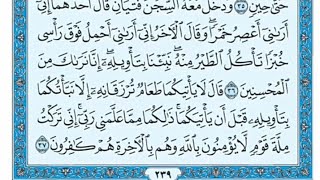 حَتَّىٰ حِينٍ ٣٥ وَدَخَلَ مَعَهُ ٱلسِّجْنَ فَتَيَانِ قَالَ أَحَدُهُمَآ إِنِّىٓ
أَرَىٰنِىٓ أَعْصِرُ خَمْرًا وَقَالَ ٱلْءَاخَرُ إِنِّىٓ أَرَىٰنِىٓ أَحْمِلُ فَوْقَ رَأْسِى
خُبْزًا تَأْكُلُ ٱلطَّيْرُ مِنْهُ نَبِّئْنَا بِتَأْوِيلِهِۦٓ إِنَّا نَرَىٰكَ مِنَ
ٱلْمُحْسِنِينَ ٣٦ قَالَ لَا يَأْتِيكُمَا طَعَامٌ تُرْزَقَانِهِۦٓ إِلَّا نَبَّأْتُكُمَا
بِتَأْوِيلِهِۦ قَبْلَ أَن يَأْتِيَكُمَا ذَٰلِكُمَا مِمَّا عَلَّمَنِى رَبِّىٓ إِنِّى تَرَكْتُ
مِلَّةَ قَوْمٍ لَّا يُؤْمِنُونَ بِٱللَّهِ وَهُم بِٱلْءَاخِرَةِ هُمْ كَٰفِرُونَ ٣٧
٢٣٩